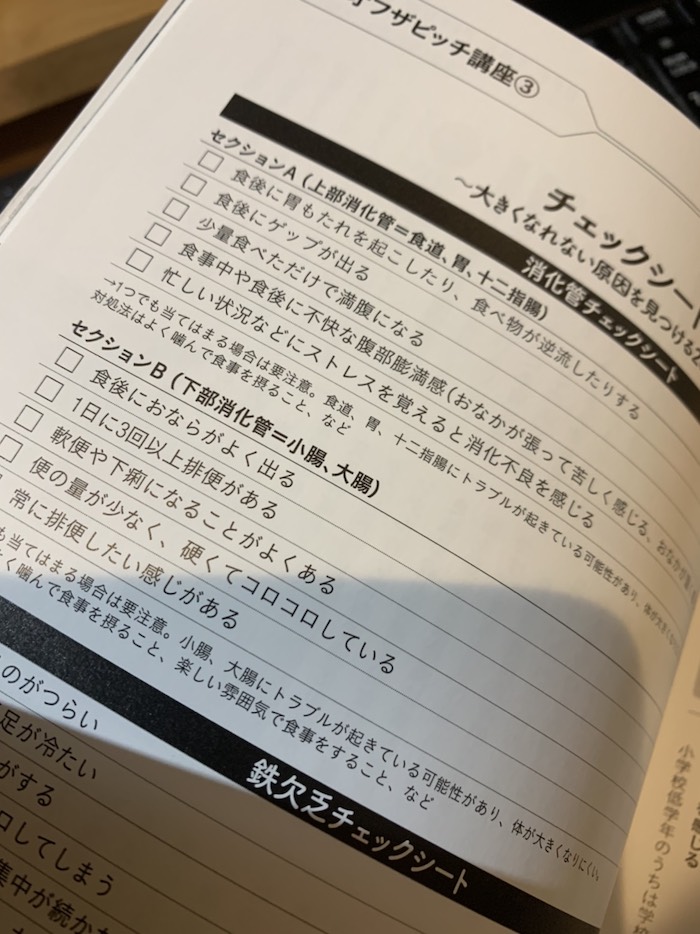 オフザピッチ講座③
チェックシート
〜大きくなれない原因を見つける
消化管チェックシート
セクションA（上部消化管＝食道、胃、十二指腸）
□ 食後に胃もたれを起こしたり、食べ物が逆流したりする
□ 食後にゲップが出る
□ 少量食べただけで満腹になる
□ 食事中や食後に不快な腹部膨満感（おなかが張って苦しく感じる、おなかが
□ 忙しい状況などにストレスを覚えると消化不良を感じる
→1つでも当てはまる場合は要注意。食道、胃、十二指腸にトラブルが起きている可能性があり、体が大きくなり
対処法はよく噛んで食事を摂ること、など
セクションB（下部消化管＝小腸、大腸）
□ 食後におならがよく出る
□ 1日に3回以上排便がある
□ 軟便や下痢になることがよくある
□ 便の量が少なく、硬くてコロコロしている
常に排便したい感じがある
も当てはまる場合は要注意。小腸、大腸にトラブルが起きている可能性があり、体が大きくなりにくい。
く噛んで食事を摂ること、楽しい雰囲気で食事をすること、など
鉄欠乏チェックシート
のがつらい
足が冷たい
がする
してしまう
集中が続か
感じる
小学校低学年のうちは学校